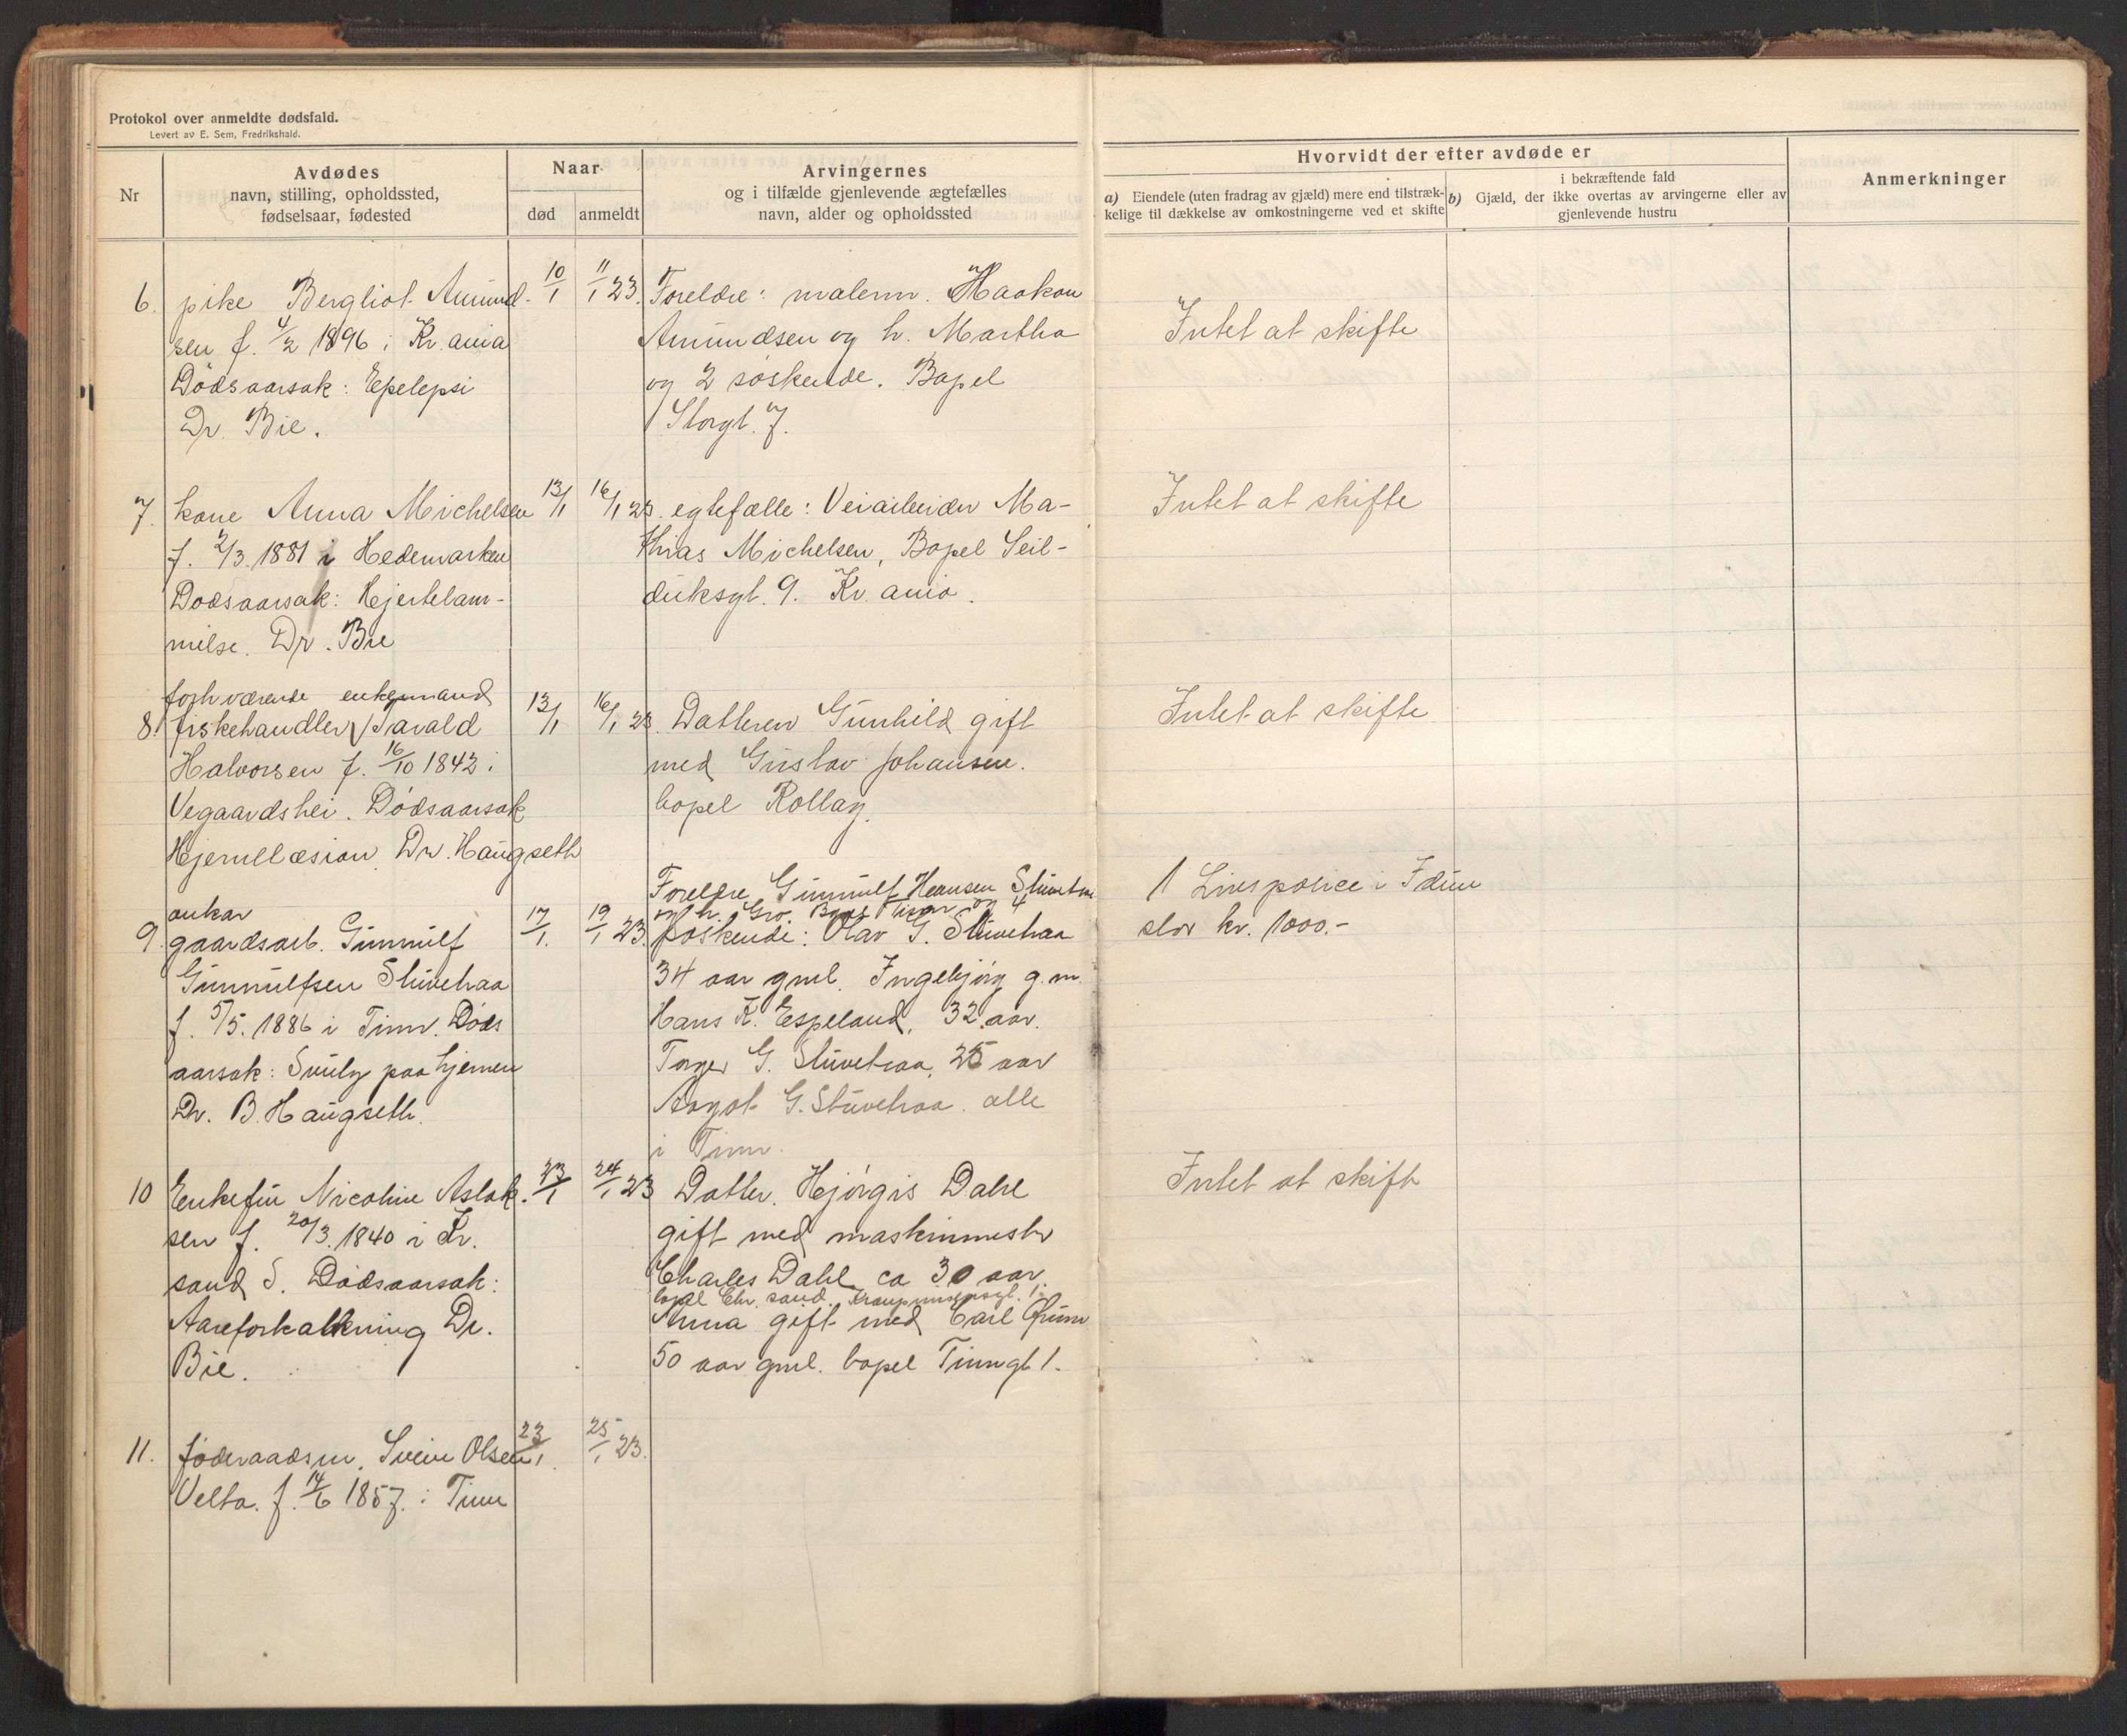 Protokol over anmeldte dødsfald.
Levert av E. Sem, Fredrikshald.
Nr
Avdødes
navn, stilling, opholdssted,
fødselsaar, fødested
Naar
død
anmeldt
Arvingernes
og i tilfælde gjenlevende ægtefælles
navn, alder og opholdssted
Hvorvidt der efter avdøde er
a) Eiendele (uten fradrag av gjæld) mere end tilstræk-
kelige til dækkelse av omkostningerne ved et skifte
i bekræftende fald
b) Gjæld, der ikke overtas av arvingerne eller av
gjenlevende hustru
Anmerkninger
6. pike Bergliot Amund-
sen f. 4/2 1896 i Kr.ania
Dødsaarsak: Epelepsi
Dr. Bie.
10/1
11/1 23.
Foreldre: malerm. Haakon
Amundsen og h. Martha
og 2 søskende. Bopel
Storgt. 7.
Intet at skifte
7. kone Anna Michelsen
f. 2/3. 1881 i Hedemarken
Dødsaarsak: Hjertelam-
melse. Dr. Bie
13/1
16/1 23.
egtefælle: Veiarbeider Ma-
thias Michelsen, Bopel Seil-
duksgt. 9. Kr.ania.
Intet at skifte
forhværende enkemand
8. fiskehandler Tarald
Halvorsen f. 16/10 1843 i
Vegaardshei. Dødsaarsak
Hjernelæsion Dr. Haugseth
13/1
16/1 23.
Datteren Gunhild gift
med Gustav Johansen.
bopel Rollag.
Intet at skifte
ankar
9. gaardsarb. Gunnulf
Gunnulfsen Stuvetraa
f. 5/5. 1886 i Tinn. Døds
aarsak: Svulst paa hjernen
Dr. B. Haugseth.
17/1.
19/1 23.
Foreldre Gunnulf Hansen
og h. Gro. og 4
søskende: Olav G. Stuvetraa
34 aar gml. Ingebjørg g.m.
Hans K. Espeland, 32 aar.
Torger G. Stuvetraa, 25 aar
Aagot G. Stuvetraa. alle
i Tinn.
1 Livspolice i Idun
stor kr. 1000.-
10 Enkefru Nicoline Aslak-
sen f. 20/3. 1840 i Kr.
sand S. Dødsaarsak:
Aareforkalkning Dr.
Bie.
23/1
24/1 23
Datter. Hjørgis Dahl
gift med maskinmester
Charles Dahl ca 30 aar.
bopel Chr.sand.
Anna gift med Carl
50 aar gml. bopel Tinngt 1.
Intet at skift
11. føderaadsm. Svein Olsen
Velta. f. 14/6 1857. i Tinn
23/1.
25/1 23.